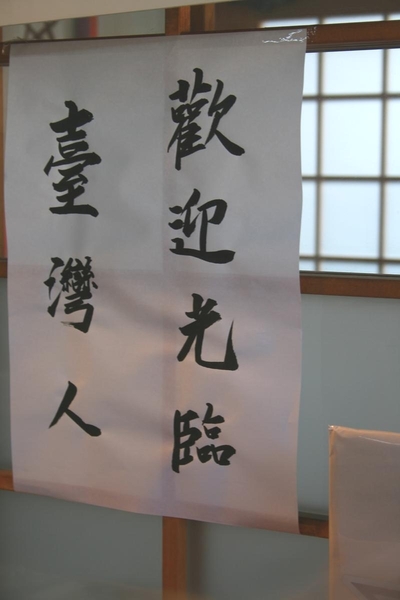 歡迎光臨
臺灣人